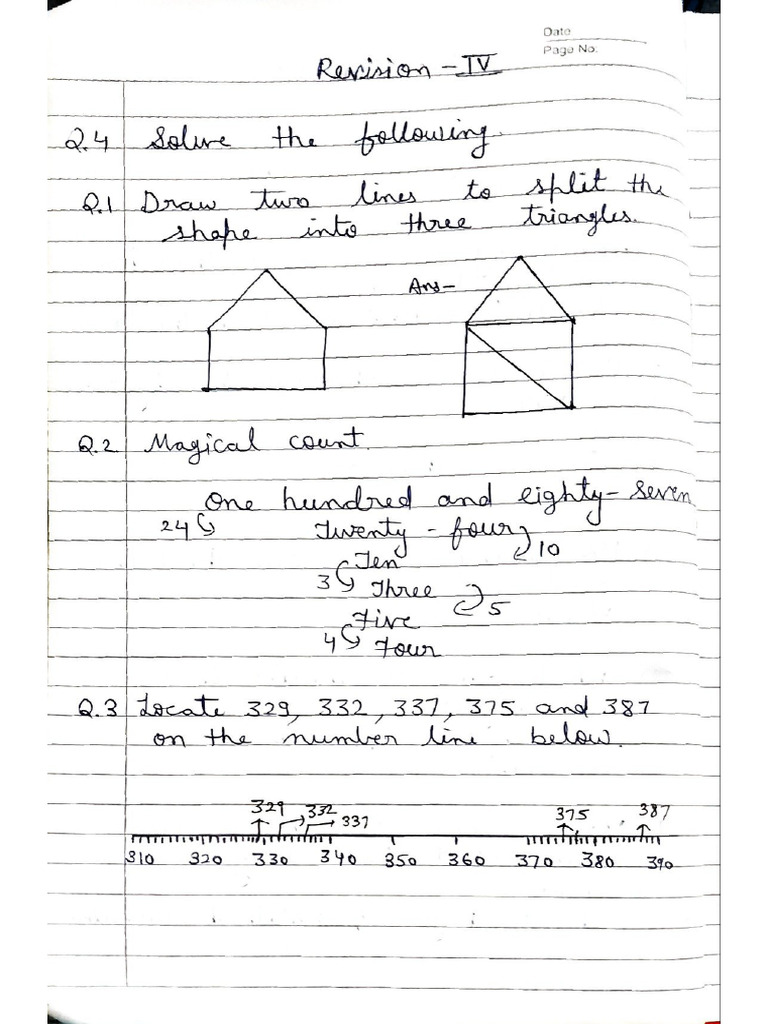 Date
Page No.
Revision - IV
Q.4 Solve the following.
Q.1 Draw two lines to split the
shape into three triangles.
Ans-
Q.2 Magical count.
One hundred and eighty-seven
24 Twenty-four
10
Ten
3 Three
5
Five
4 Four
Q.3 Locate 329, 332, 337, 375 and 387
on the number line below.
329 332 337 375 387
310 320 330 340 350 360 370 380 390